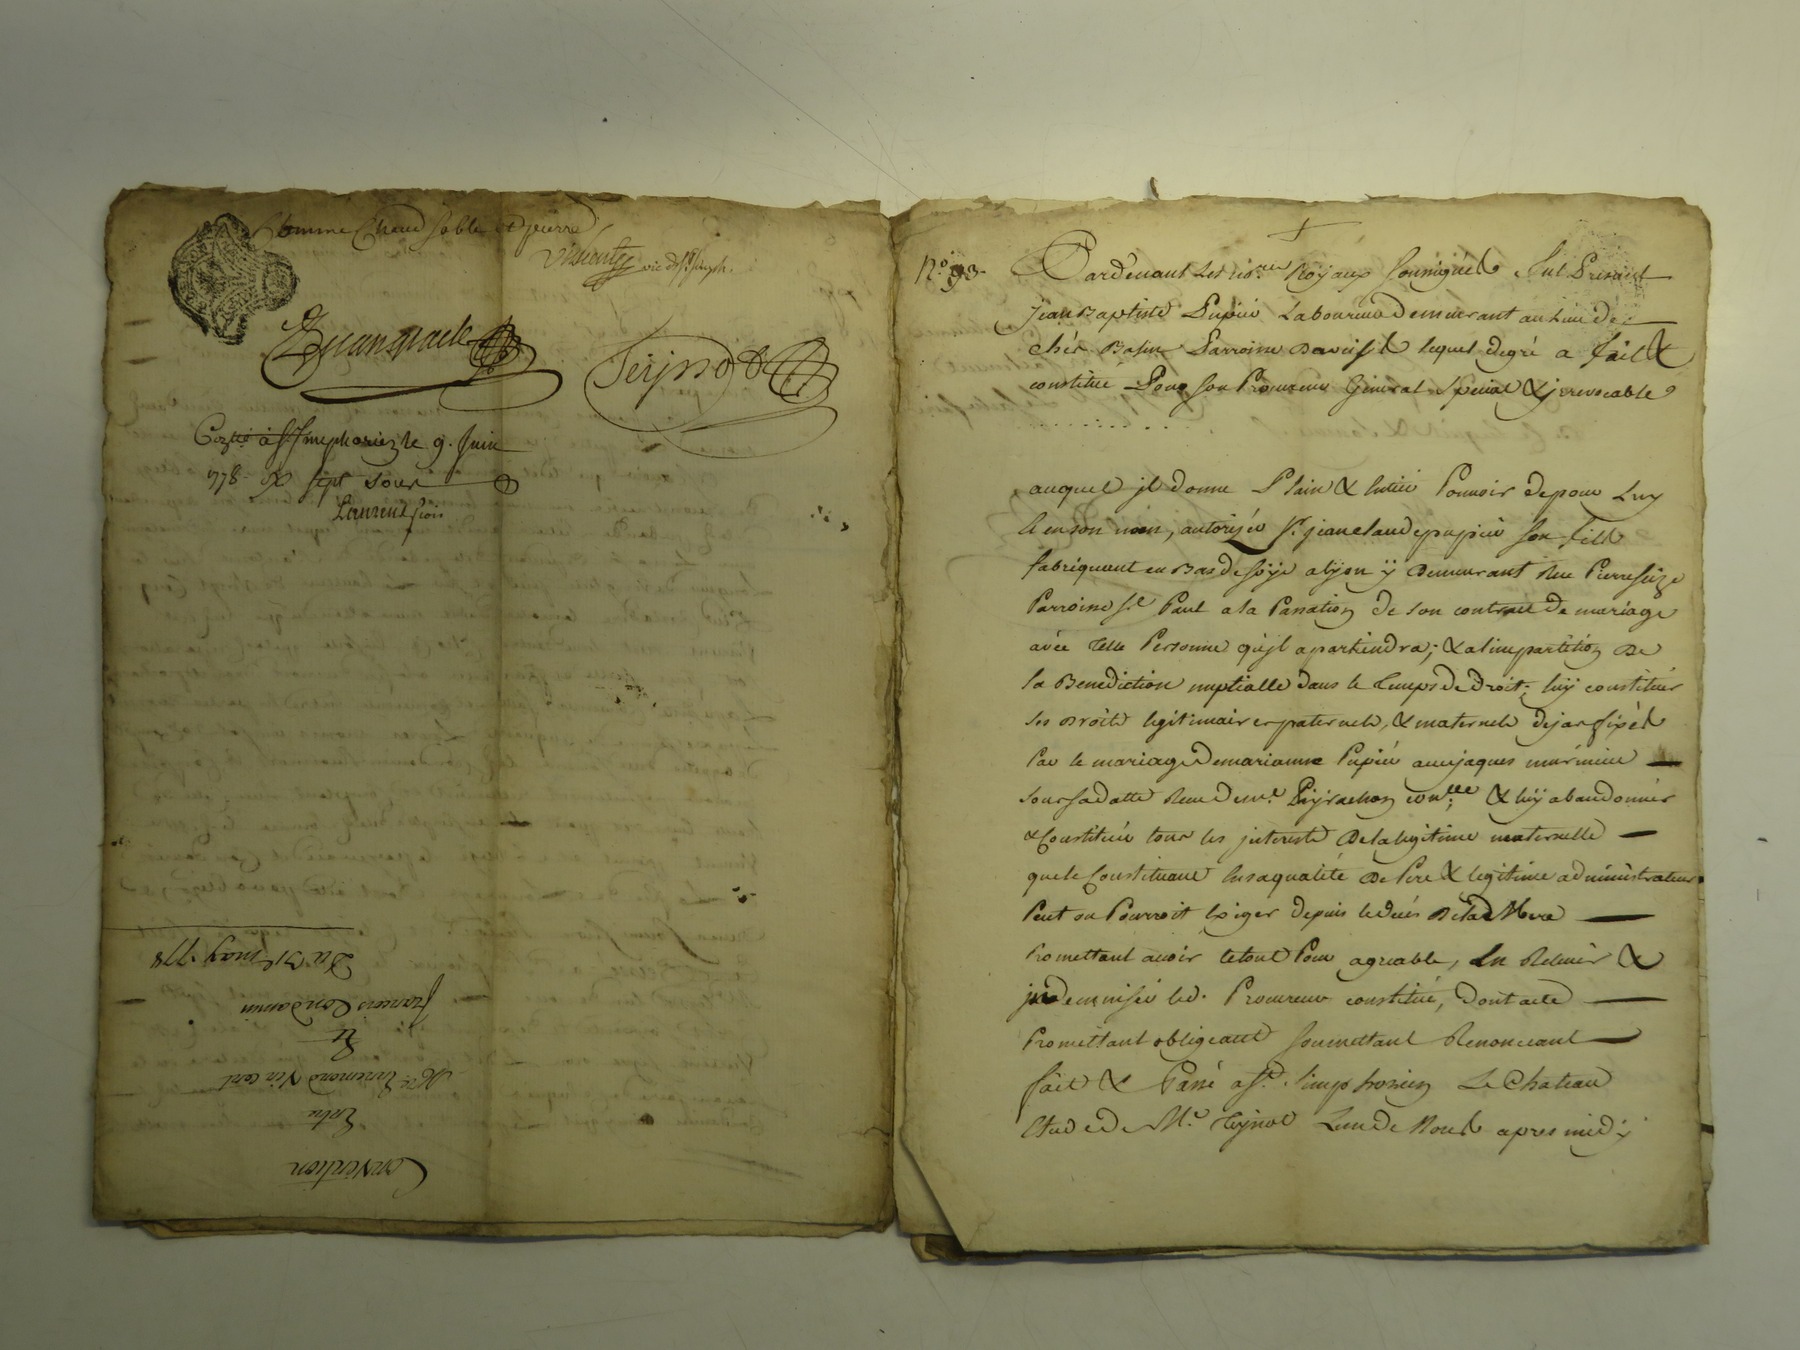 Comme Chaud sable et pierre
Vincent
Escangrade
Teijnod
Con.lé à St Simphorien le 9. Juin
1778. sept sour
Laurent
Convention
Entre
Mre. Vincent
&
françois Condamin
Du 31e may 1778
No. 93.
Pardevant Les No.res Royaux soussignés fut Present
Jean Baptiste Pupier Laboureur demeurant au Lieu de
chés Basin Parroisse lequel degré a fait &
constitué Pour son Procureur General special & jrrevocable
auquel jl donne Plain & Entier Pouvoir de pour Luy
& en son nom, autoriser Sr. jean claude pupier son fils
fabriquant en Bas de soÿe a lÿon ÿ demeurant Rue Pierresize
Parroisse St. Paul a la Passation de son contract de mariage
avec telle Personne qu'jl apartiendra; & a l'impartition de
la Benediction nuptialle dans le temps de droit; luÿ constituer
ses droits legitimaires paternels, & maternels deja fixés
Par le mariage de marianne Pupier avec jaques
sous sa datte Reçu de Me. Peyrachon & luÿ abandonner
& Constituer tous les jnterests de la legitime maternelle
que le Constituant En sa qualité de Pere & legitime administrateur
Peut ou Pourroit Exiger depuis le decés de la de Mere
Promettant avoir le tout Pour agreable, En Relever &
jndemniser led. Procureur constitué, dont acte
Promettant obligeant soumettant Renonceant
fait & Passé a St. simphorien Le Chateau
Etude de Me. Teijnod L'un de Nous apres midÿ